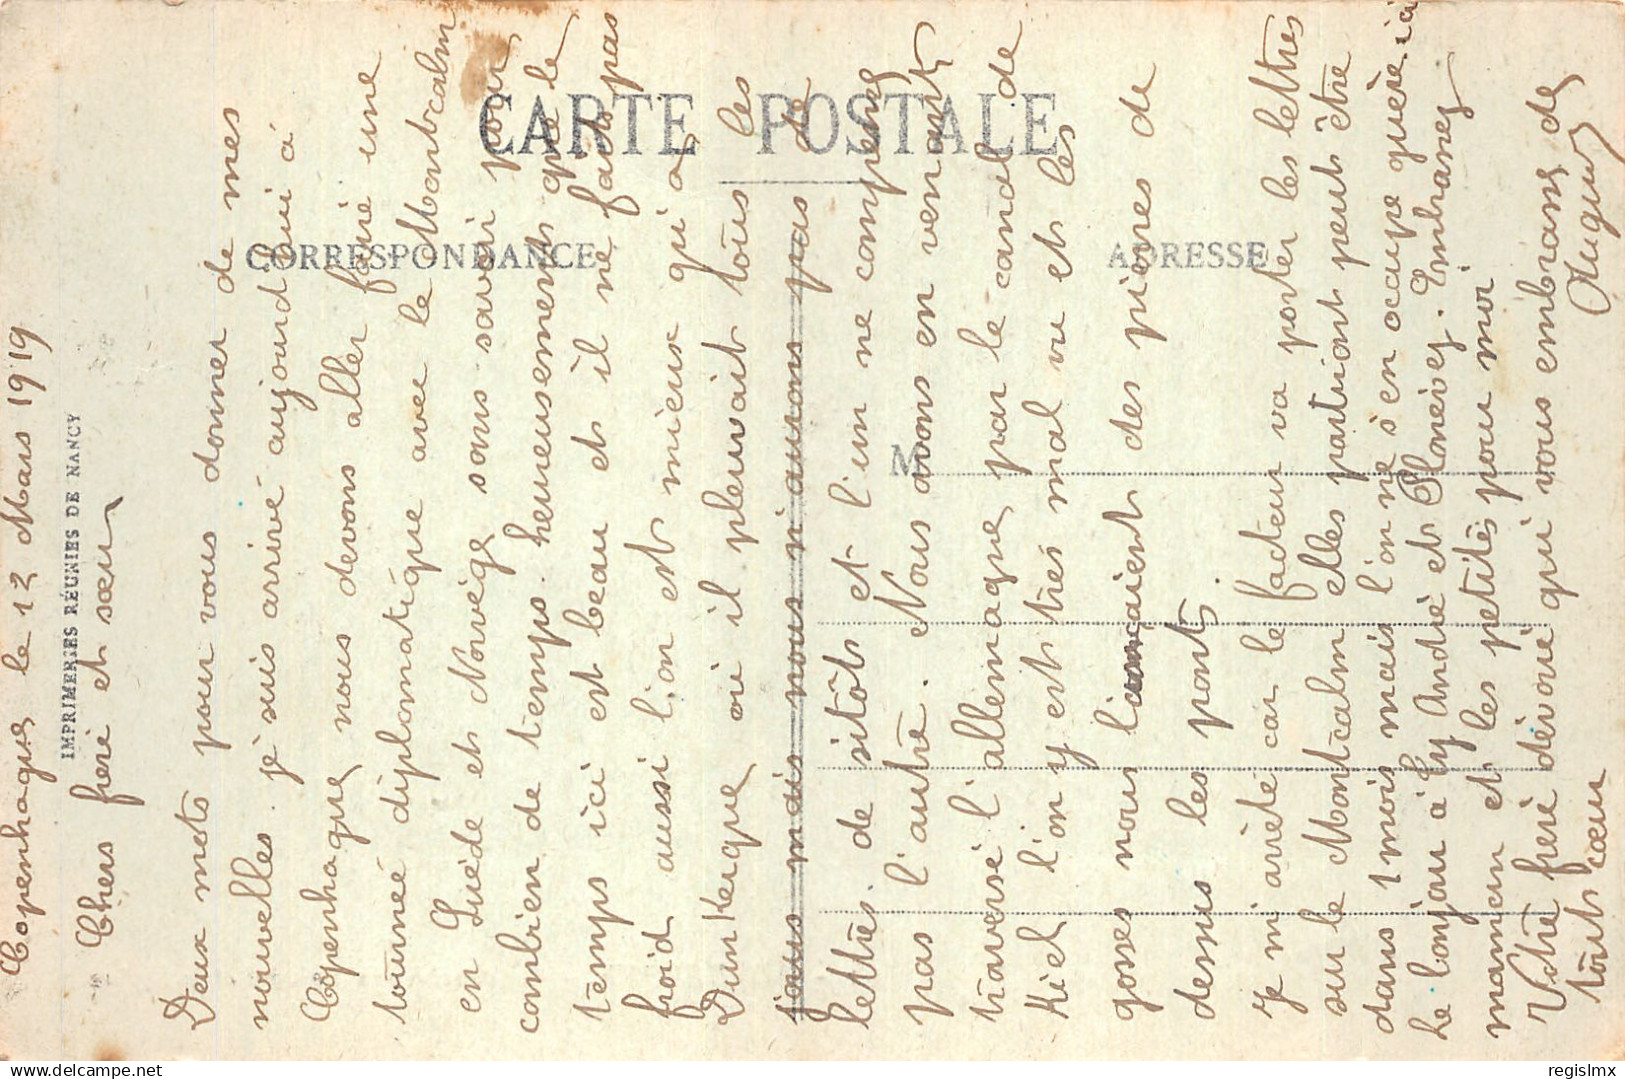 CARTE POSTALE
CORRESPONDANCE
ADRESSE
M
IMPRIMERIES RÉUNIES DE NANCY
Copenhague le 12 Mars 1919
Chers frère et sœur
Deux mots pour vous donner de mes
nouvelles. je suis arrivé aujourd'hui à
Copenhague nous devons aller faire une
tournée diplomatique avec le Montcalm
en Suède et Norvège sans savoir pour
combien de temps. heureusement que le
temps ici est beau et il ne fait pas
froid aussi l'on est mieux qu'a
Dunkerque où il pleuvait tous les
jours mais nous n'aurons pas de
lettres de sitôt et l'un ne compense
pas l'autre. Nous avons en venant
traversé l'allemagne par le canal de
Kiel l'on y est très mal vu et les
gosses nous lançaient des pierres de
dessus les ponts.
Je m'arrête car le facteur va porter les lettres
sur le Montcalm elles partiront peut être
dans 1 mois mais l'on ne s'en occupe guère ici
Le bonjour à Ly André et Plonévez. Embrassez
maman et les petites pour moi
Votre frère dévoué qui vous embrasse de
tout cœur